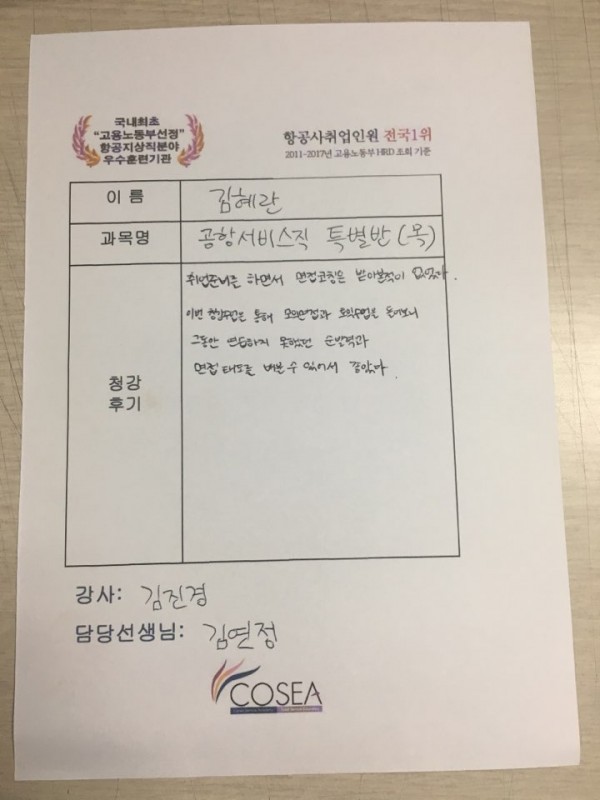 국내최초
"고용노동부선정"
항공지상직분야
우수훈련기관
항공사취업인원 전국1위
2011-2017년 고용노동부 HRD 조회 기준
이 름
김혜란
과목명
공항서비스직 특별반 (목)
청강
후기
취업준비를 하면서 면접코칭은 받아본적이 없었다.
이번 청강수업을 통해 모의면접과 모의수업을 들어보니
그동안 연습하지 못했던 순발력과
면접 태도를 배울 수 있어서 좋았다.
강사: 김진경
담당선생님: 김연정
COSEA